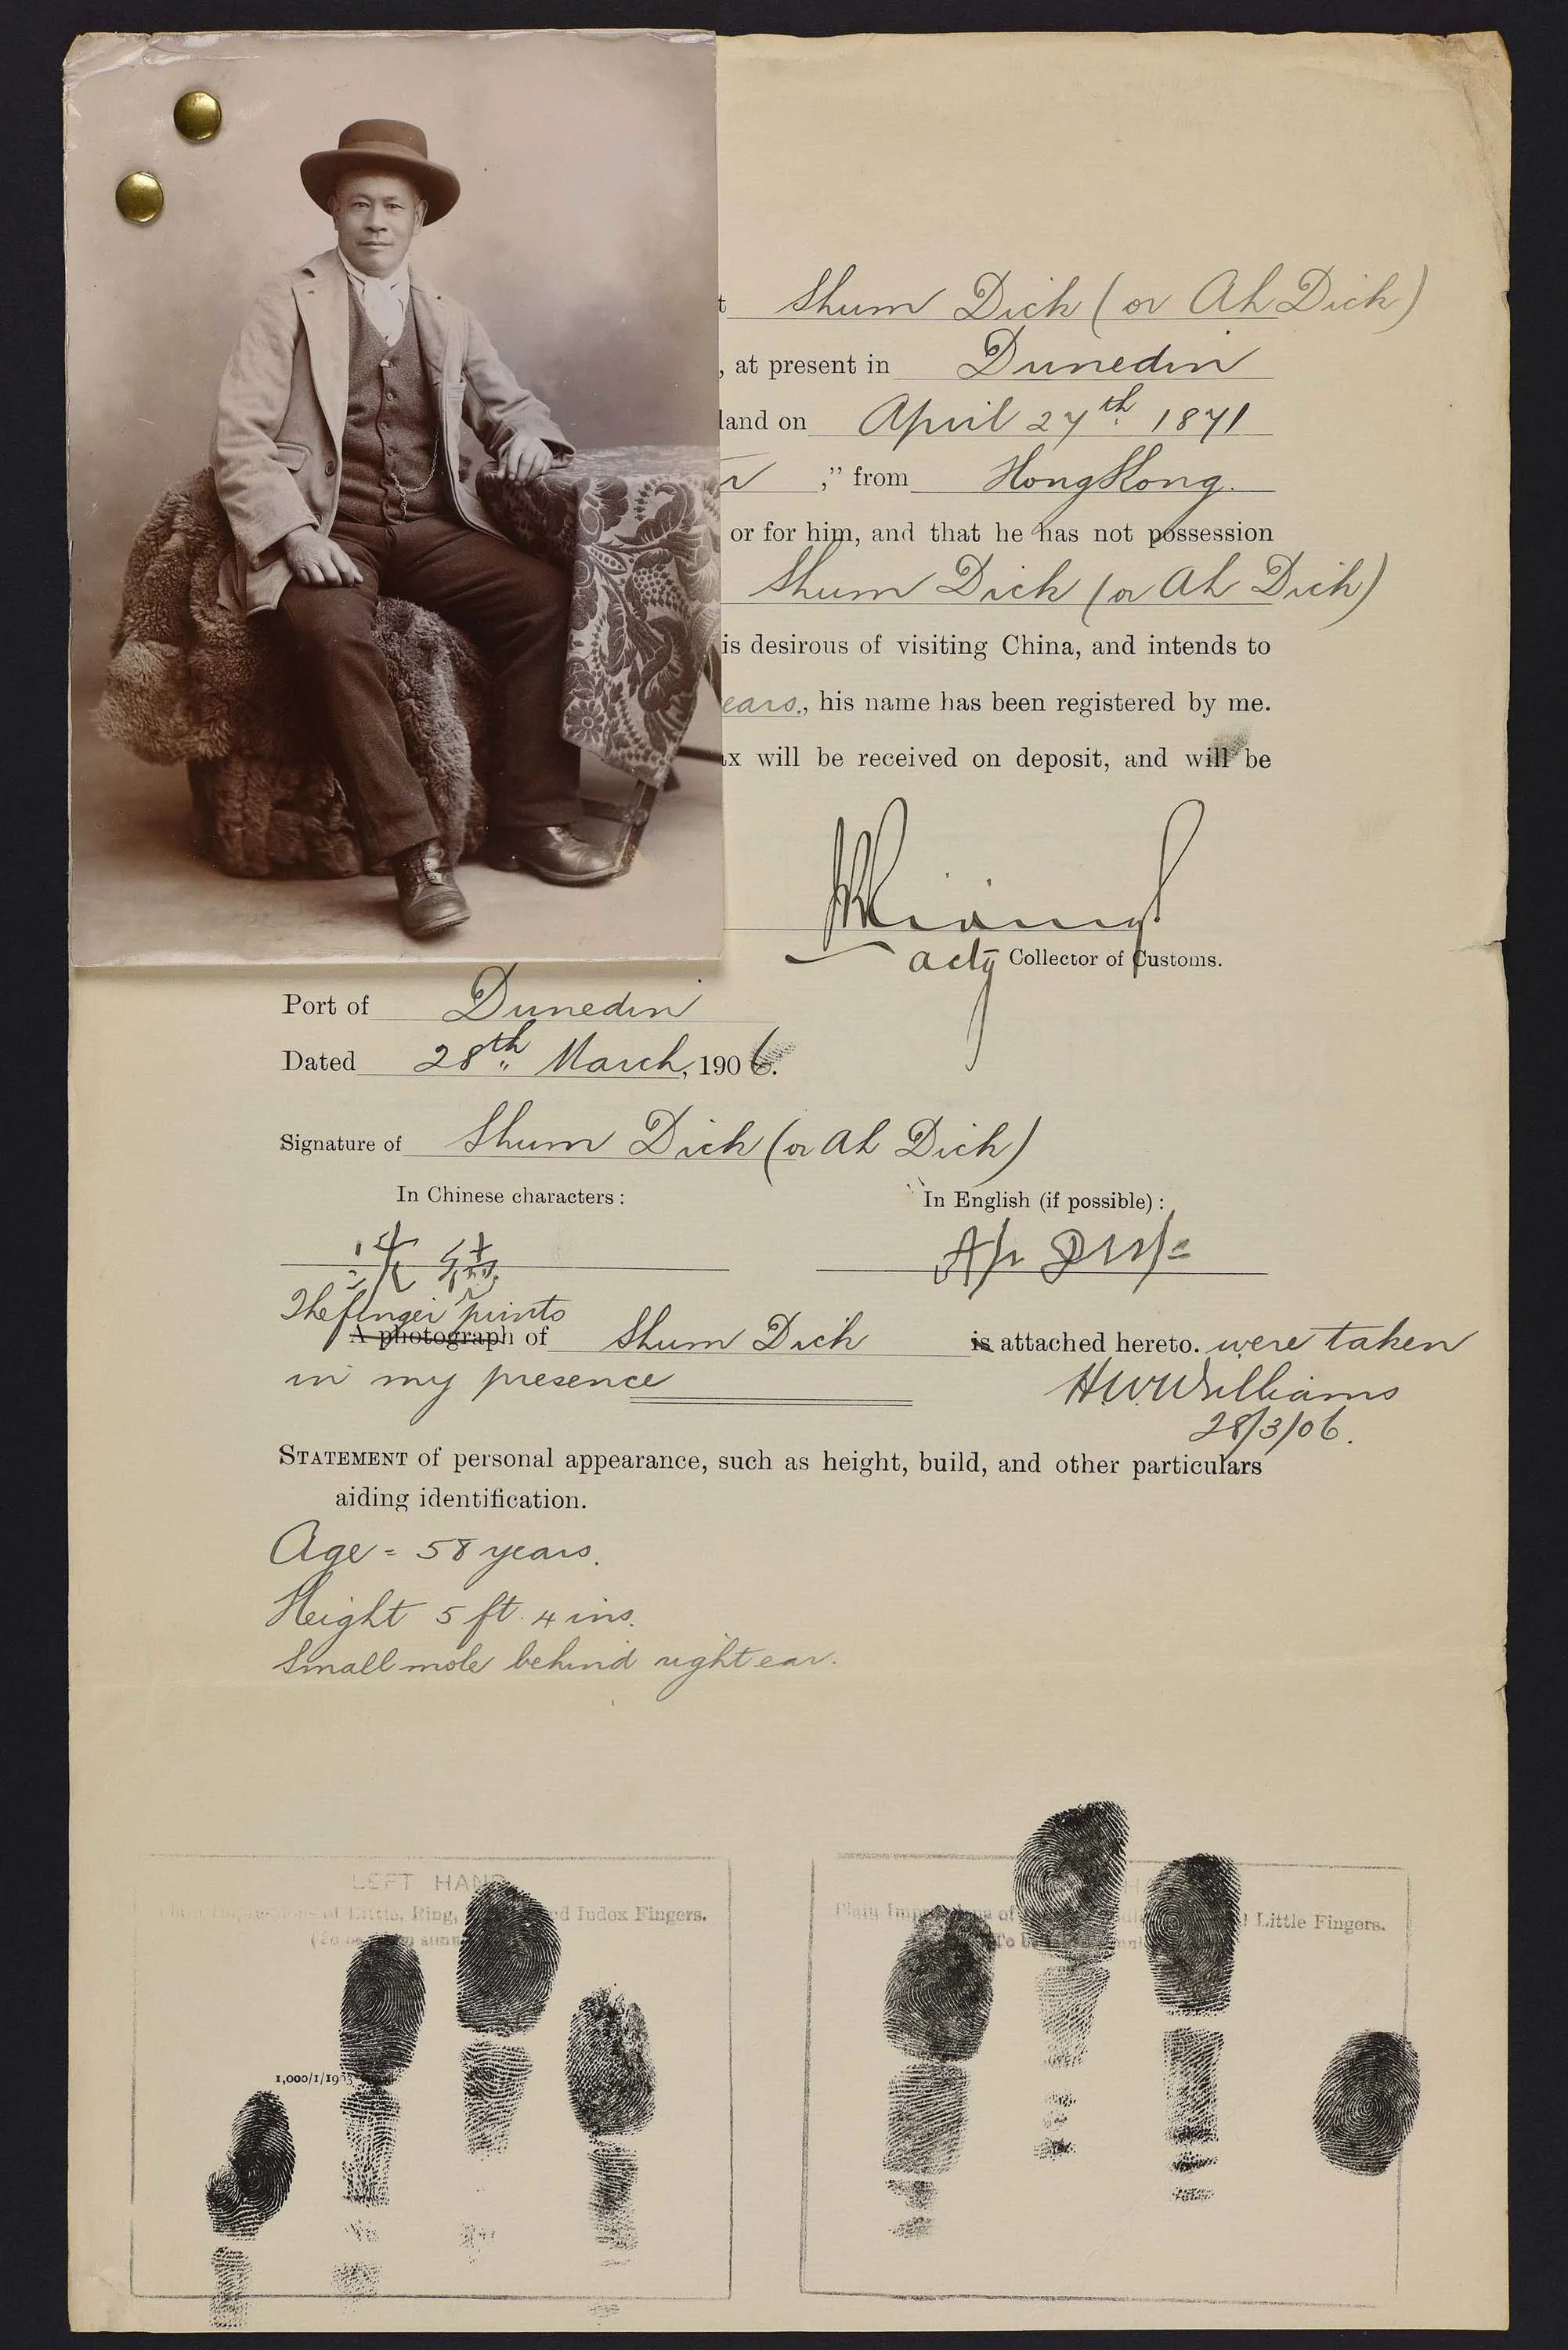 Shum Dick (or Ah Dick)
, at present in Dunedin
land on April 27th 1871
," from Hong Kong.
or for him, and that he has not possession
Shum Dick (or Ah Dick)
is desirous of visiting China, and intends to
ears., his name has been registered by me.
will be received on deposit, and will be
acty Collector of Customs.
Port of Dunedin
Dated 28th March, 1906.
Signature of Shum Dick (or Ah Dick)
In Chinese characters: In English (if possible):
The finger prints
A photograph of Shum Dick is attached hereto. were taken
in my presence H.W. Williams
28/3/06.
STATEMENT of personal appearance, such as height, build, and other particulars
aiding identification.
Age = 58 years.
Height 5 ft. 4 ins.
Small mole behind right ear.
LEFT HAND
of Little, Ring, Index Fingers.
Plain of Little Fingers.